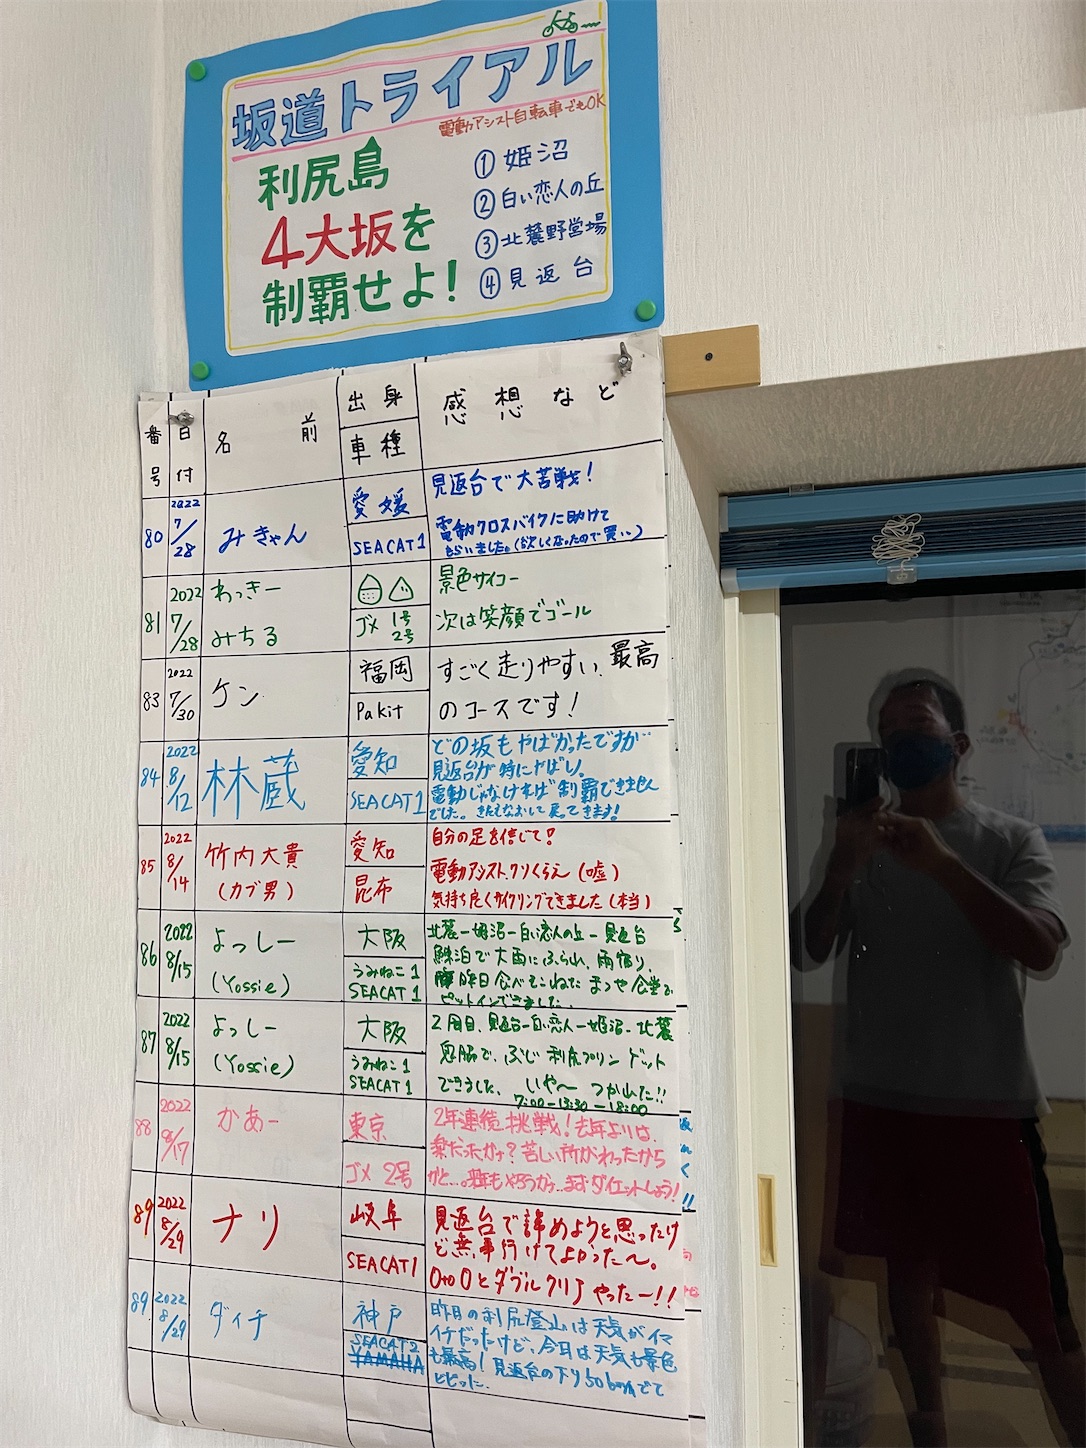 坂道トライアル
電動アシスト自転車でもOK
利尻島
4大坂を
制覇せよ!
① 姫沼
② 白い恋人の丘
③ 北麓野営場
④ 見返台
番号
日付
名前
出身
車種
感想など
80
2022
7/28
みきゃん
愛媛
SEACAT1
見返台で大苦戦!
電動クロスバイクに助けて
もらいました。(欲しくなったので買い)
81
2022
7/28
わっきー
みちる
ゴメ 1号
2号
景色サイコー
次は笑顔でゴール
83
2022
7/30
ケン
福岡
Pakit
すごく走りやすい、最高
のコースです!
84
2022
8/12
林蔵
愛知
SEACAT1
どの坂もやばかったですが
見返台が特にやばい。
電動じゃなければ制覇できません
でした。きたえなおして戻ってきます!
85
2022
8/14
竹内大貴
(カブ男)
愛知
昆布
自分の足を信じて!
電動アシストクソくらえ(嘘)
気持ち良くサイクリングできました(本当)
86
2022
8/15
よっしー
(Yossie)
大阪
うみねこ1
SEACAT1
北麓ー姫沼ー白い恋人の丘ー見返台
鬼泊で大雨にふられ、雨宿り、
昨日食べそこねた まつや食堂
ピットインできました。
87
2022
8/15
よっしー
(Yossie)
大阪
うみねこ1
SEACAT1
2周目、見返台ー白い恋人ー姫沼ー北麓
鬼脇で、利尻プリン ゲット
できました、いや〜 つかれた!!
7:00-13:30-18:00
88
2022
8/17
かあー
東京
ゴメ 2号
2年連続挑戦!去年よりは、
楽だったかな?苦しい所がわかったから
かと…。来年もやろうか…まずダイエットしよう!
89
2022
8/29
ナリ
岐阜
SEACAT1
見返台で諦めようと思ったけ
ど無事行けてよかった〜。
0to0とダブルクリア やったー!!
89
2022
8/29
ダイチ
神戸
SEACAT2
YAMAHA
昨日の利尻登山は天気がイマ
イチだったけど、今日は天気も景色
も最高!見返台の下り50kmでて
ビビった。